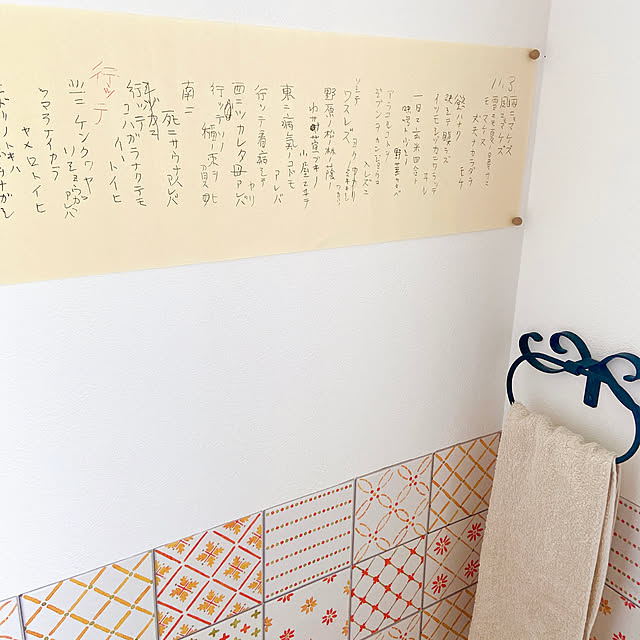 雨ニモマケズ
風ニモマケズ
雪ニモ夏ノ暑サニモ
マケヌ
丈夫ナカラダヲ
モチ
慾ハナク
決シテ瞋ラズ
イツモシヅカニワラッテ
ヰル
一日ニ玄米四合ト
味噌ト少シノ
野菜ヲタベ
アラユルコトヲ
ジブンヲカンジョウニ
入レズニ
ヨクミキキシ
ワカリ
ソシテ
ワスレズ
野原ノ松ノ林ノ蔭ノ
小屋ニヰテ
東ニ病気ノコドモ
アレバ
行ッテ看病シテ
ヤリ
西ニツカレタ母アレバ
行ッテソノ
稲ノ束ヲ
負ヒ
南ニ
死ニサウナ人アレバ
行ッテ
コハガラナクテモ
イヽトイヒ
北ニケンクヮヤ
ソショウガアレバ
ツマラナイカラ
ヤメロトイヒ
行ッテ